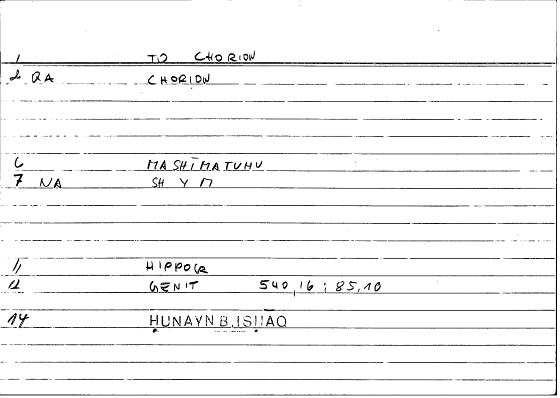 1 TO CHORION
2 QA CHORION
6 MASHĪMATUHU
7 NA SH Y M
11 HIPPOCR
12 GENIT 540,16 ; 85,10
14 ḤUNAYN B. ISḤĀQ